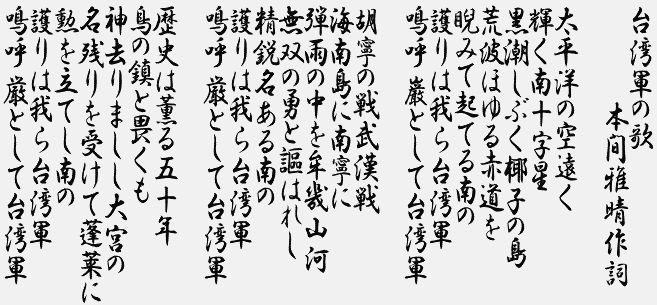 台湾軍の歌
本間雅晴作詞
太平洋の空遠く
輝く南十字星
黒潮しぶく椰子の島
荒波ほゆる赤道を
睨みて起てる南の
護りは我ら台湾軍
嗚呼 厳として台湾軍
胡寧の戦武漢戦
海南島に南寧に
弾雨の中を幾山河
無双の勇と謳はれし
精鋭名ある南の
護りは我ら台湾軍
嗚呼 厳として台湾軍
歴史は薫る五十年
島の鎮と畏くも
神去りましし大宮の
名残りを受けて蓬莱に
勲を立てし南の
護りは我ら台湾軍
嗚呼 厳として台湾軍